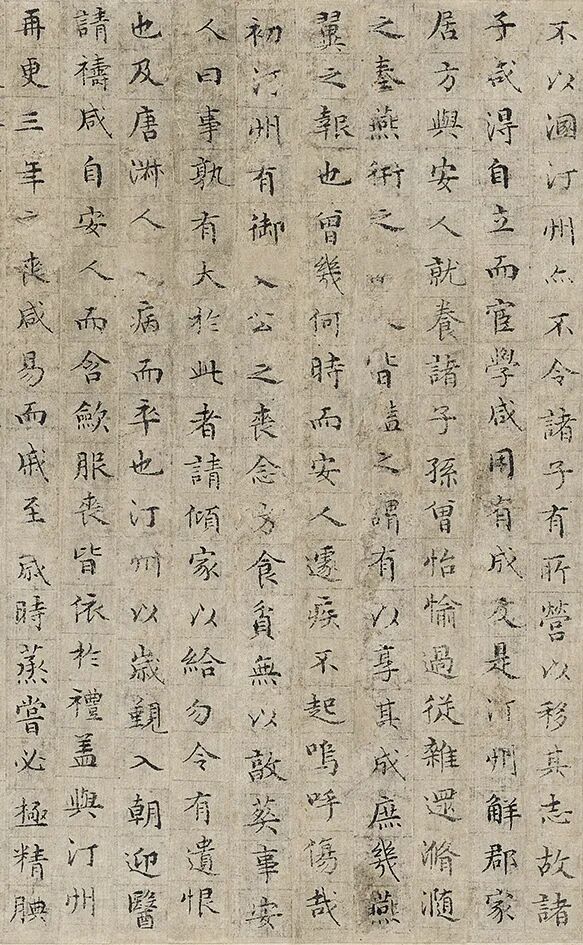 不以溷汀州亦不令諸子有所營以移其志故諸
子咸得自立而宦學咸用有成及是汀州解郡家
居方與安人就養諸子孫曾怡愉過從雜還滫瀡
之奉燕衎之 皆 之謂有以享其成庶幾燕
翼之報也曾幾何時而安人遽疾不起嗚呼傷哉
初汀州有御人公之喪念方食貧無以敦葬事安
人曰事孰有大於此者請傾家以給勿令有遺恨
也及唐淋人人病而卒也汀州以歲覲入朝迎醫
請禱咸自安人而含歛服喪皆依於禮盖與汀州
再更三年之喪咸易而戚至歲時蒸嘗必極精腆